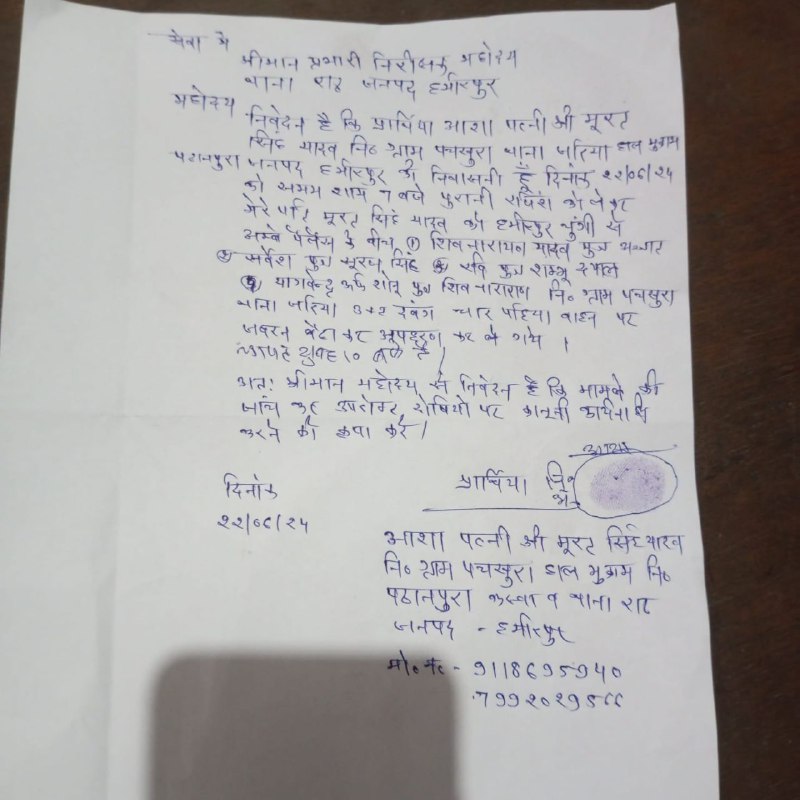 सेवा में
श्रीमान प्रभारी निरीक्षक महोदय
थाना राठ जनपद हमीरपुर
महोदय निवेदन है कि प्रार्थिया आशा पत्नी श्री मूरत
सिंह यादव नि० ग्राम पचखुरा थाना जरिया हाल मुकाम
पठानपुरा जनपद हमीरपुर की निवासनी हूँ दिनांक २२/०६/२४
को समय शाम ७ बजे पुरानी रंजिश को लेकर
मेरे पति मूरत सिंह यादव को हमीरपुर चुंगी से
अम्बे पैलेस के बीच ① शिवनारायण यादव पुत्र
सर्वेश पुत्र सूरज सिंह रवि पुत्र शम्भू दयाल
यागवेन्द्र उर्फ शीलू पुत्र शिवनारायण नि० ग्राम पचखुरा
थाना जरिया चार पहिया वाहन पर
जबरन बैठा कर अपहरण कर ले गये ।
अतः श्रीमान महोदय से निवेदन है कि मामले की
जांच कर उपरोक्त दोषियो पर कानूनी कार्यवाही
करने की कृपा करें ।
दिनांक
२२/०६/२४
प्रार्थिया
आशा पत्नी श्री मूरत सिंह यादव
नि० ग्राम पचखुरा हाल मुकाम नि०
पठानपुरा कस्बा व थाना राठ
जनपद - हमीरपुर
मो० नं० - 9118695940